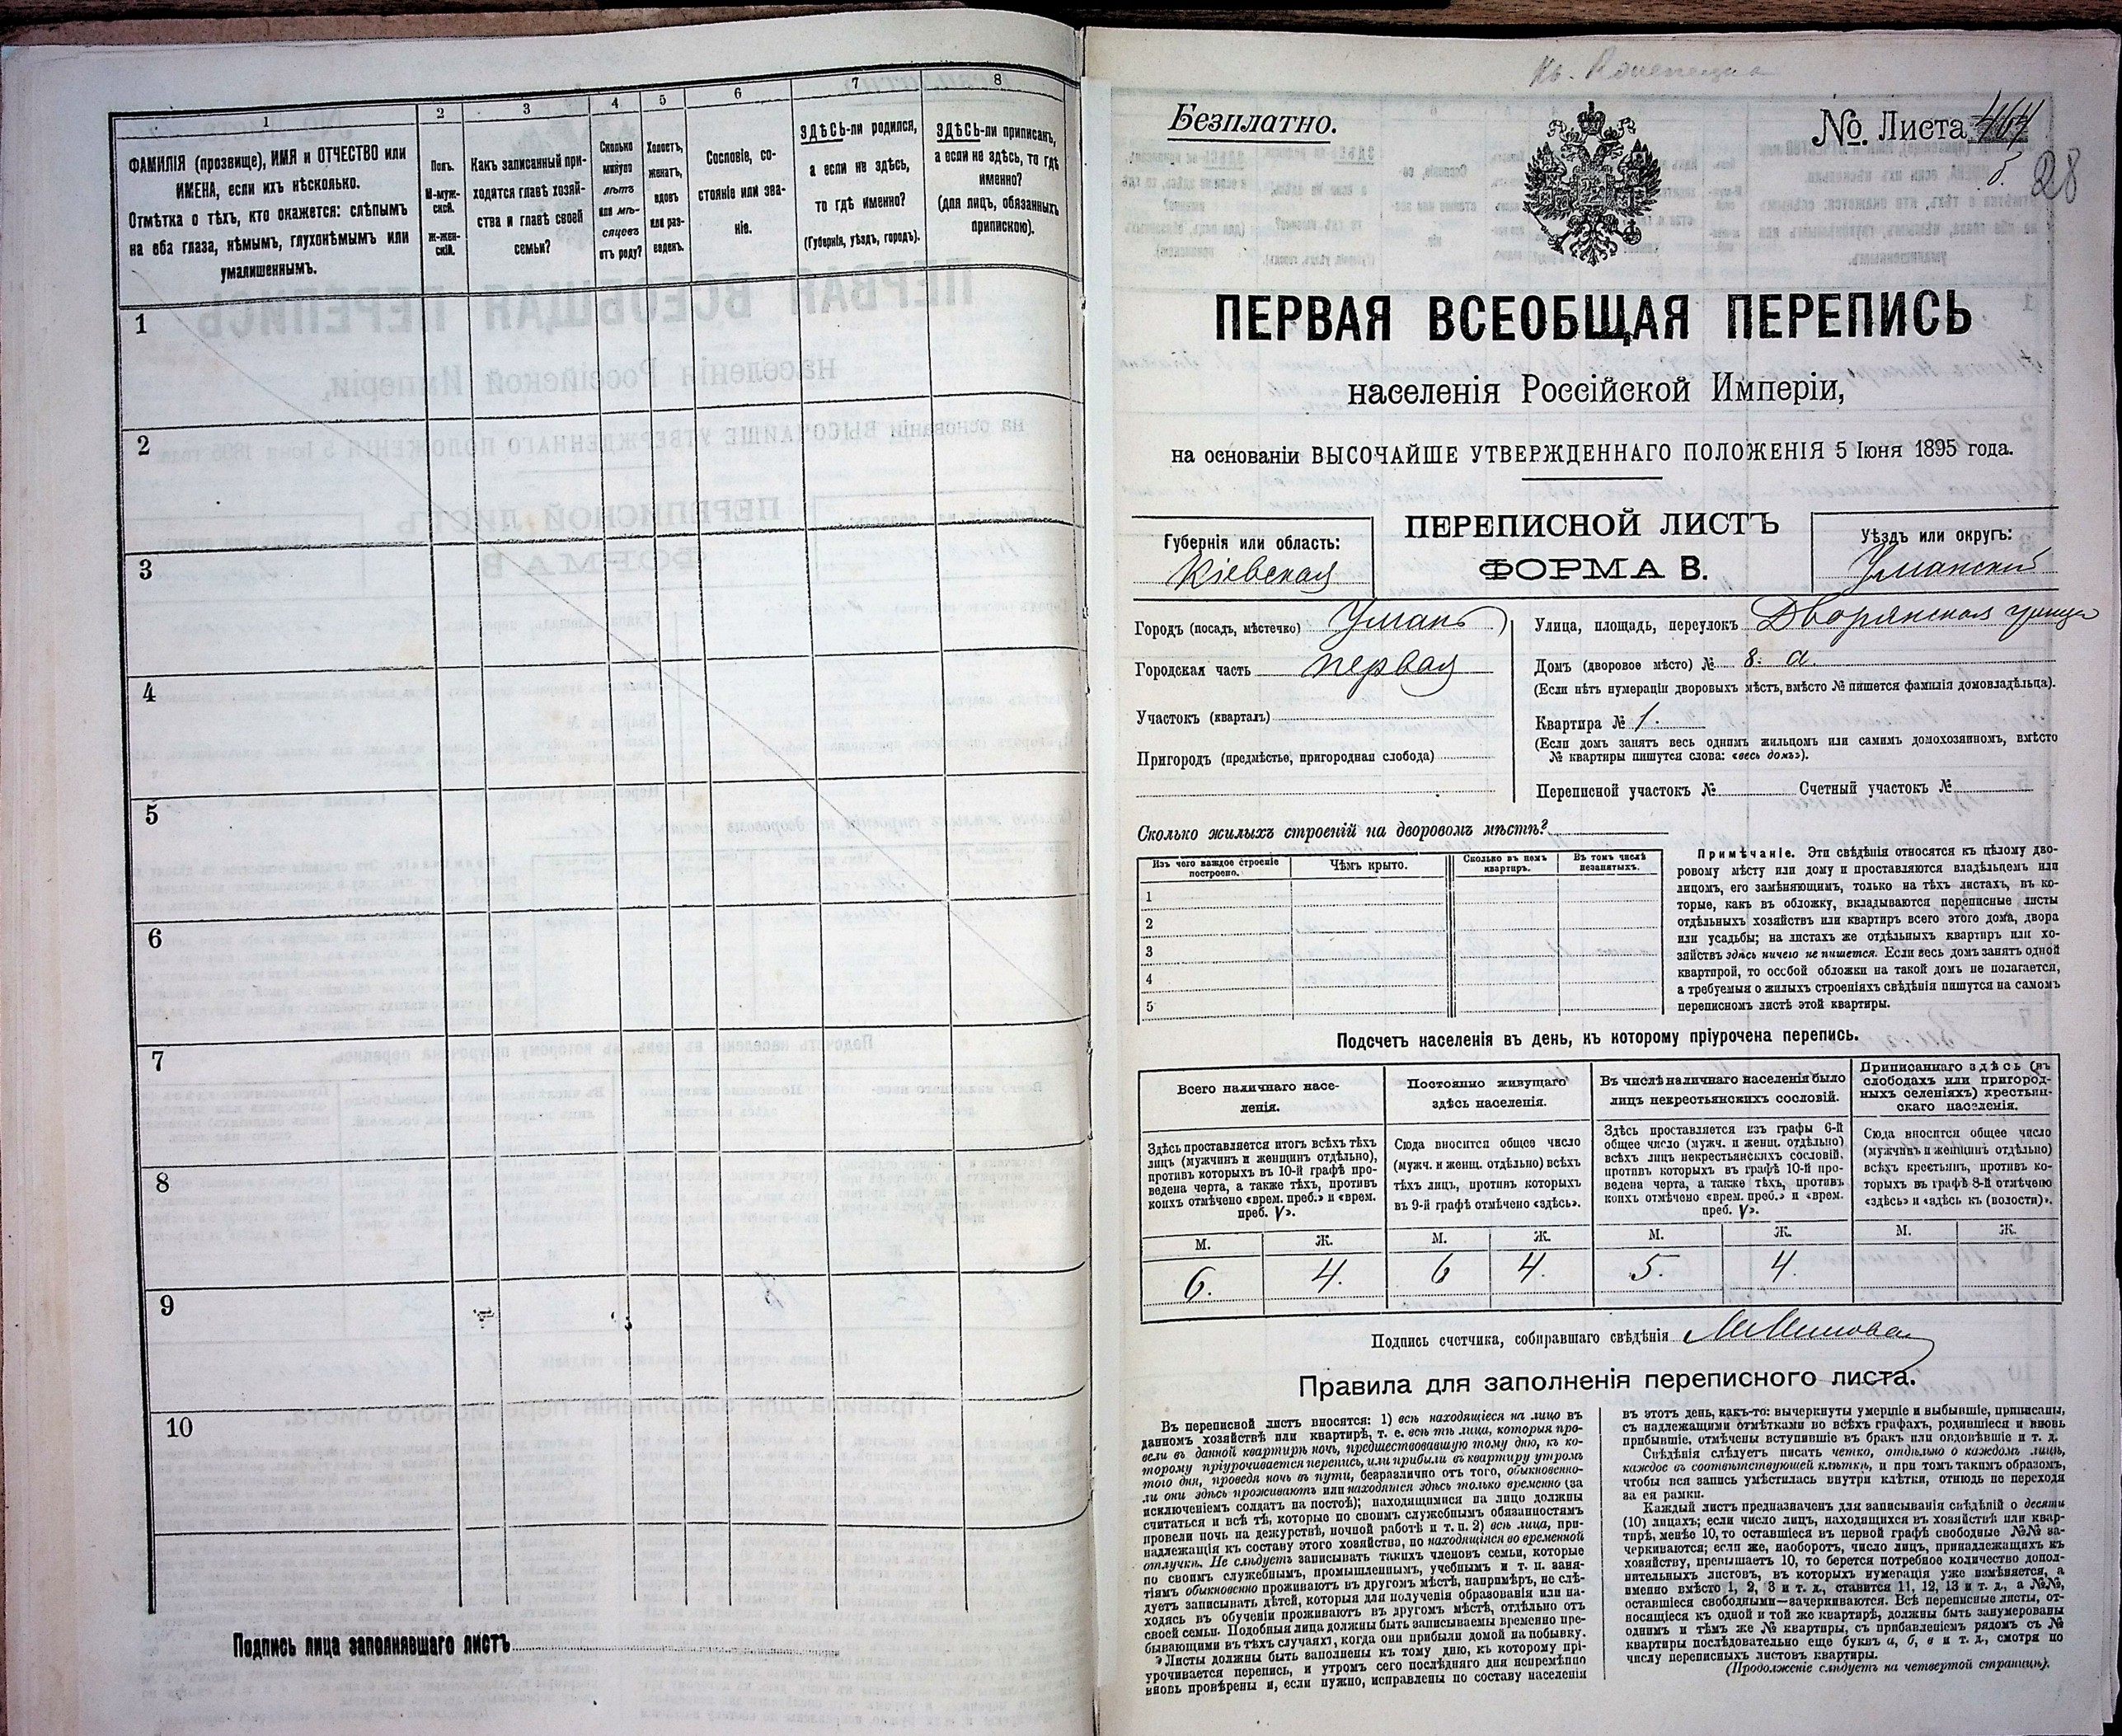 1
2
3
4
5
6
7
8
ФАМИЛІЯ (прозвище), ИМЯ и ОТЧЕСТВО или
ИМЕНА, если ихъ нѣсколько.
Отмѣтка о тѣхъ, кто окажется: слѣпымъ
на оба глаза, нѣмымъ, глухонѣмымъ или
умалишеннымъ.
Полъ.
М-муж-
ской.
ж-жен-
скій.
Какъ записанный при-
ходится главѣ хозяй-
ства и главѣ своей
семьи?
Сколько
минуло
лѣтъ
или мѣ-
сяцевъ
отъ роду?
Холостъ,
женатъ,
вдовъ
или раз-
веденъ.
Сословіе, со-
стояніе или зва-
ніе.
ЗДѢСЬ-ли родился,
а если не здѣсь,
то гдѣ именно?
(Губернія, уѣздъ, городъ).
ЗДѢСЬ-ли приписанъ,
а если не здѣсь, то гдѣ
именно?
(для лицъ, обязанныхъ
припискою).
1
2
3
4
5
6
7
8
9
10
Подпись лица заполнявшаго листъ
Безплатно.
№ Листа 464
28
ПЕРВАЯ ВСЕОБЩАЯ ПЕРЕПИСЬ
населенія Россійской Имперіи,
на основаніи ВЫСОЧАЙШЕ УТВЕРЖДЕННАГО ПОЛОЖЕНІЯ 5 Іюня 1895 года.
Губернія или область:
Кіевская
ПЕРЕПИСНОЙ ЛИСТЪ
ФОРМА В.
Уѣздъ или округъ:
Уманскій
Городъ (посадъ, мѣстечко) Умань
Городская часть первая
Участокъ (кварталъ)
Пригородъ (предмѣстье, пригородная слобода)
Улица, площадь, переулокъ Дворянская улица
Домъ (дворовое мѣсто) № 8. а.
(Если нѣтъ нумераціи дворовыхъ мѣстъ, вмѣсто № пишется фамилія домовладѣльца).
Квартира № 1.
(Если домъ занятъ весь однимъ жильцомъ или самимъ домохозяиномъ, вмѣсто
№ квартиры пишутся слова: «весь домъ»).
Переписной участокъ № Счетный участокъ №
Сколько жилыхъ строеній на дворовомъ мѣстѣ?
Изъ чего каждое строеніе
построено.
Чѣмъ крыто.
Сколько въ немъ
квартиръ.
Въ томъ числѣ
незанятыхъ.
1
2
3
4
5
Примѣчаніе. Эти свѣдѣнія относятся къ цѣлому дво-
ровому мѣсту или дому и проставляются владѣльцемъ или
лицомъ, его замѣняющимъ, только на тѣхъ листахъ, въ ко-
торые, какъ въ обложку, вкладываются переписные листы
отдѣльныхъ хозяйствъ или квартиръ всего этого дома, двора
или усадьбы; на листахъ же отдѣльныхъ квартиръ или хо-
зяйствъ здѣсь ничего не пишется. Если весь домъ занятъ одной
квартирой, то особой обложки на такой домъ не полагается,
а требуемыя о жилыхъ строеніяхъ свѣдѣнія пишутся на самомъ
переписномъ листѣ этой квартиры.
Подсчетъ населенія въ день, къ которому пріурочена перепись.
Всего наличнаго насе-
ленія.
Постоянно живущаго
здѣсь населенія.
Въ числѣ наличнаго населенія было
лицъ некрестьянскихъ сословій.
Приписаннаго здѣсь (въ
слободахъ или пригород-
ныхъ селеніяхъ) крестьян-
скаго населенія.
Здѣсь проставляется итогъ всѣхъ тѣхъ
лицъ (мужчинъ и женщинъ отдѣльно),
противъ которыхъ въ 10-й графѣ про-
ведена черта, а также тѣхъ, противъ
коихъ отмѣчено «врем. преб.» и «врем.
преб. V».
Сюда вносится общее число
(мужч. и женщ. отдѣльно) всѣхъ
тѣхъ лицъ, противъ которыхъ
въ 9-й графѣ отмѣчено «здѣсь».
Здѣсь проставляется изъ графы 6-й
общее число (мужч. и женщ. отдѣльно)
всѣхъ лицъ некрестьянскихъ сословій,
противъ которыхъ въ графѣ 10-й про-
ведена черта, а также тѣхъ, противъ
коихъ отмѣчено «врем. преб.» и «врем.
преб. V».
Сюда вносится общее число
(мужчинъ и женщинъ отдѣльно)
всѣхъ крестьянъ, противъ ко-
торыхъ въ графѣ 8-й отмѣчено
«здѣсь» и «здѣсь къ (волости)».
М. Ж. М. Ж. М. Ж. М. Ж.
6. 4. 6 4. 5. 4.
Подпись счетчика, собиравшаго свѣдѣнія
Правила для заполненія переписного листа.
Въ переписной листъ вносятся: 1) всѣ находящіеся на лицо въ
данномъ хозяйствѣ или квартирѣ, т. е. всѣ тѣ лица, которыя про-
вели въ данной квартирѣ ночь, предшествовавшую тому дню, къ ко-
торому пріурочивается перепись, или прибыли въ квартиру утромъ
того дня, проведя ночь въ пути, безразлично отъ того, обыкновенно-
ли они здѣсь проживаютъ или находятся здѣсь только временно (за
исключеніемъ солдатъ на постоѣ); находящимися на лицо должны
считаться и всѣ тѣ, которые по своимъ служебнымъ обязанностямъ
провели ночь на дежурствѣ, ночной работѣ и т. п. 2) всѣ лица, при-
надлежащія къ составу этого хозяйства, но находящіяся во временной
отлучкѣ. Не слѣдуетъ записывать такихъ членовъ семьи, которые
по своимъ служебнымъ, промышленнымъ, учебнымъ и т. п. заня-
тіямъ обыкновенно проживаютъ въ другомъ мѣстѣ, напримѣръ, не слѣ-
дуетъ записывать дѣтей, которыя для полученія образованія или на-
ходясь въ обученіи проживаютъ въ другомъ мѣстѣ, отдѣльно отъ
своей семьи. Подобныя лица должны быть записываемы временно пре-
бывающими въ тѣхъ случаяхъ, когда они прибыли домой на побывку.
Листы должны быть заполнены къ тому дню, къ которому прі-
урочивается перепись, и утромъ сего послѣдняго дня непремѣнно
вновь провѣрены и, если нужно, исправлены по составу населенія
въ этотъ день, какъ-то: вычеркнуты умершіе и выбывшіе, приписаны,
съ надлежащими отмѣтками во всѣхъ графахъ, родившіеся и вновь
прибывшіе, отмѣчены вступившіе въ бракъ или овдовѣвшіе и т. д.
Свѣдѣнія слѣдуетъ писать четко, отдѣльно о каждомъ лицѣ,
каждое въ соотвѣтствующей клѣткѣ, и при томъ такимъ образомъ,
чтобы вся запись умѣстилась внутри клѣтки, отнюдь не переходя
за ея рамки.
Каждый листъ предназначенъ для записыванія свѣдѣній о десяти
(10) лицахъ; если число лицъ, находящихся въ хозяйствѣ или квар-
тирѣ, менѣе 10, то оставшіеся въ первой графѣ свободные №№ за-
черкиваются; если же, наоборотъ, число лицъ, принадлежащихъ къ
хозяйству, превышаетъ 10, то берется потребное количество допол-
нительныхъ листовъ, въ которыхъ нумерація уже измѣняется, а
именно вмѣсто 1, 2, 3 и т. д., ставится 11, 12, 13 и т. д., а №№,
оставшіеся свободными—зачеркиваются. Всѣ переписные листы, от-
носящіеся къ одной и той же квартирѣ, должны быть занумерованы
однимъ и тѣмъ же № квартиры, съ прибавленіемъ рядомъ съ №
квартиры послѣдовательно еще буквъ а, б, в и т. д., смотря по
числу переписныхъ листовъ квартиры.
(Продолженіе слѣдуетъ на четвертой страницѣ).